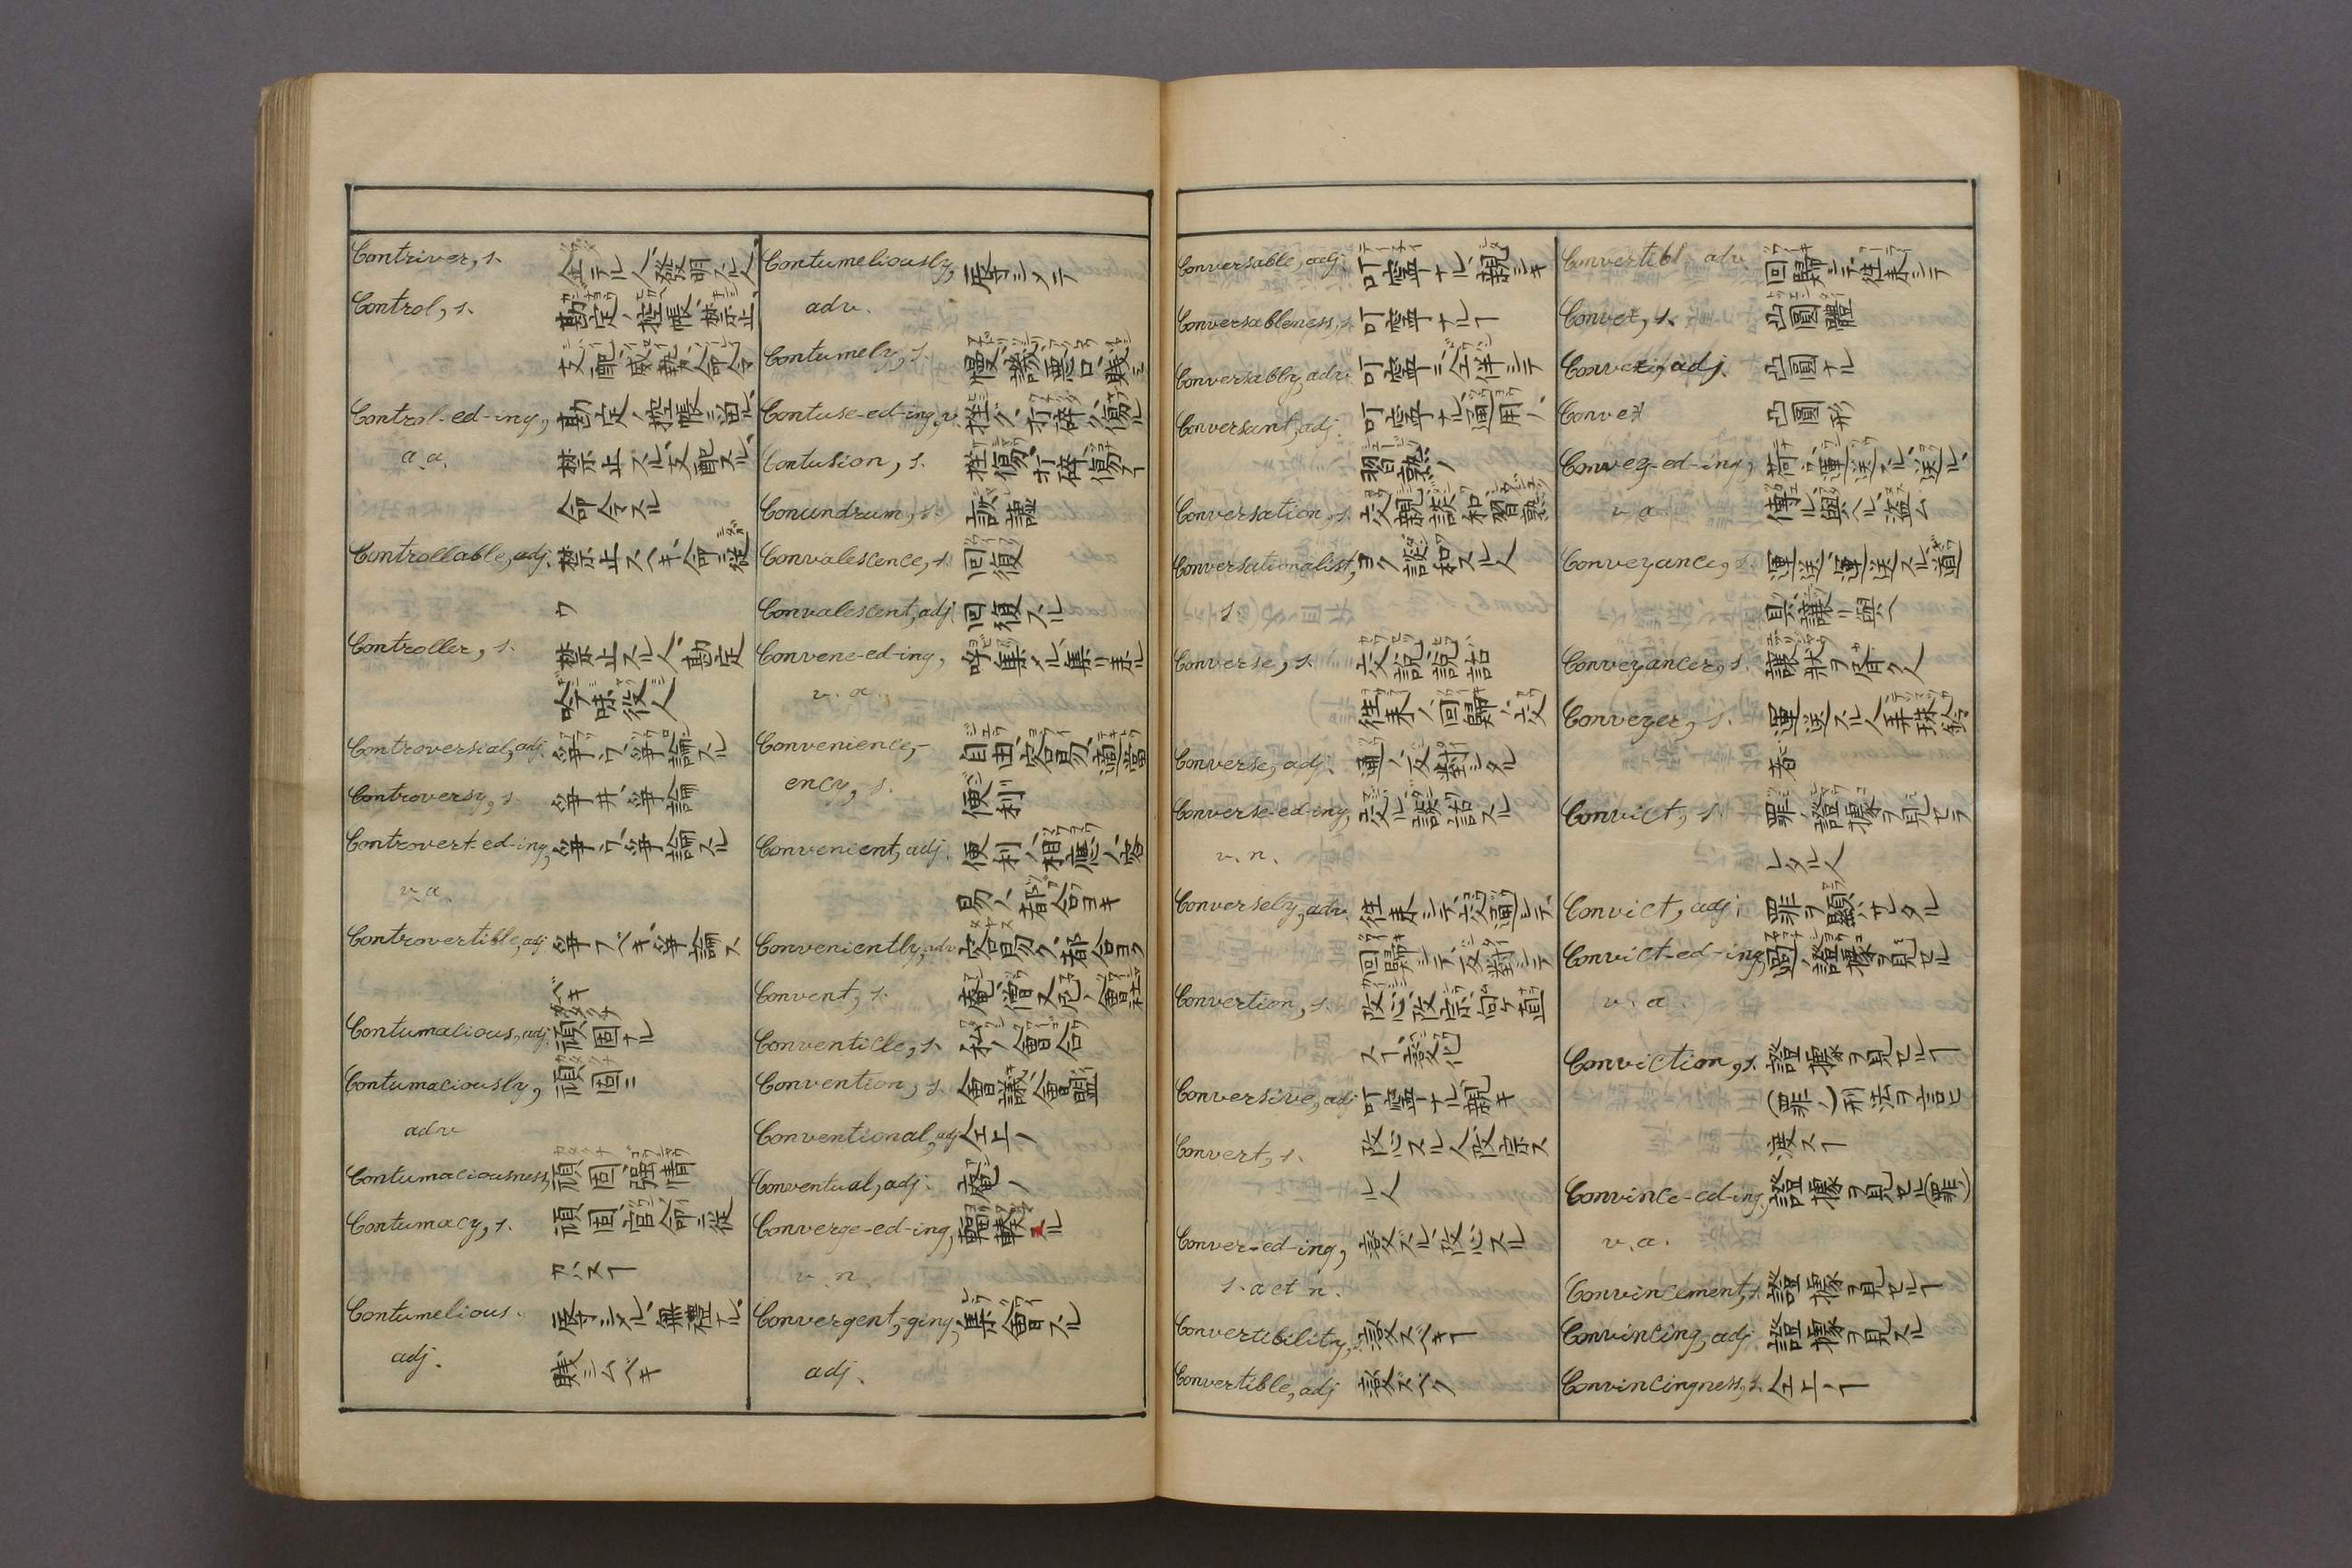 Contriver, s. 企テル人、發明スル人
Control, s. 勘定ノ控帳、禁止、
支配、威勢、命令
Control-ed-ing, 勘定ノ控帳ニ留ル、
a.a. 禁止スル、支配スル、
命令スル
Controllable, adj. 禁止スヘキ、命ニ從
ウ
Controller, s. 禁止スル人、勘定
吟味役人
Controversial, adj. 爭ウ、爭論スル
Controversy, s. 爭井、爭論
Controvert-ed-ing, 爭ウ、爭論スル
v.a.
Controvertible, adj. 爭フベキ、爭論ス
ベキ
Contumacious, adj. 頑固ナル
Contumaciously, 頑固ニ
adv
Contumaciousness, 頑固、强情
Contumacy, s. 頑固、官命ニ從
ハスヿ
Contumelious. 辱シメル、無禮ナル、
adj. 賤シムベキ
Contumeliously, 辱シメテ
adv.
Contumely, s. 慢、謗、悪口、賤シミ
Contuse-ed-ing, v. 挫ク、打碎ク、傷ル
Contusion, s. 挫傷、打碎、傷ク
Conundrum, s. 謎
Convalescence, s. 回復
Convalescent, adj. 回復スル
Convene-ed-ing, 呼集メル、集リ来ル
v.a.
Convenience,- 自由、容易、適當
ency, s. 便利
Convenient, adj. 便利ノ、相應ノ、容
易ノ、都合ヨキ
Conveniently, adv. 容易ク、都合ヨク
Convent, s. 庵、僧又尼ノ會社
Conventicle, s. 私ノ會合
Convention, s. 會議、會盟
Conventional, adj. 仝上ノ
Conventual, adj. 庵ノ
Converge-ed-ing, 輻輳スル
v.n.
Convergent,-ging, 集會スル
adj.
Conversable, adj. 叮寧ナル、親シキ
Conversableness, s. 叮寧ナルヿ
Conversably, adv. 叮寧ニ、仝伴シテ
Conversant, adj. 叮寧ナル、通用ノ、
習熟ノ
Conversation, s. 交親、談和、習熟
Conversationalist, ヨク談和スル人
s
Converse, s. 交説、説話
往来ノ、回歸ノ、交
Converse, adj. 通ノ、反對シタル
Converse-ed-ing, 交ル、談話スル
v.n.
Conversely, adv. 往来シテ、交通シテ、
回歸シテ、反對シテ
Convertion, s. 改心、改宗、向ケ直
スヿ、變化
Conversive, adj 叮寧ナル、親キ
Convert, s. 改心スル人、改宗ス
ル人
Conver-ed-ing, 變ズル、改心スル
s.act n.
Convertibility, 變ズベキヿ
Convertible, adj 變ズベク
Convertibl adv. 回歸シテ、往来シテ
Convex, s. 凸圓體
Convex, adj. 凸圓ナル
Convex 凸圓形
Convey-ed-ing, 荷ウ、運送スル、送ル、
v a. 傳ル、與ヘル、盗ム
Conveyance, s. 運送、運送スル道
具、讓リ與ヘ
Conveyancer, s. 讓状ヲ書ク人
Conveyer, s. 運送スル人、
者
Convict, s. 罪ノ證據ヲ見セラ
レタル人
Convict, adj. 罪ヲ顯ハサレタル
Convict-ed-ing, ノ證據ヲ見セル
v.a.
Conviction, s. 證據ヲ見セルヿ
(罪ノ)刑法ヲ言ヒ
渡スヿ
Convince-ed-ing, 證據ヲ見セル(罪)
v.a.
Convincement, s. 證據ヲ見セルヿ
Convincing, adj. 證據ヲ見スル
Convincingness, s. 仝上ノヿ